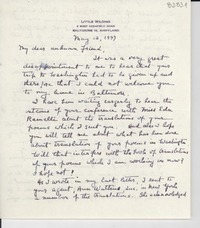 LITTLE WILDING
4 WEST CHESFIELD ROAD
BALTIMORE 10, MARYLAND
May 16, 1949
My dear unknown friend,
It was a very great
disappointment to me to hear that your
trip to Washington had to be given up and
therefore that I could not welcome you
to my home in Baltimore.
I have been waiting eagerly to hear the
outcome of your conference with Miss
about the translations of your
poems which I sent you. And also I hope
you will tell me about what has been done
about translation of your poems in Washington
Will that interfere with the book of translations
of your poems which I am working on now?
I hope not!
As I wrote in my last letter, I sent to
your agent, Ann Watkins, Inc. in New York
a number of the translations. She acknowledged